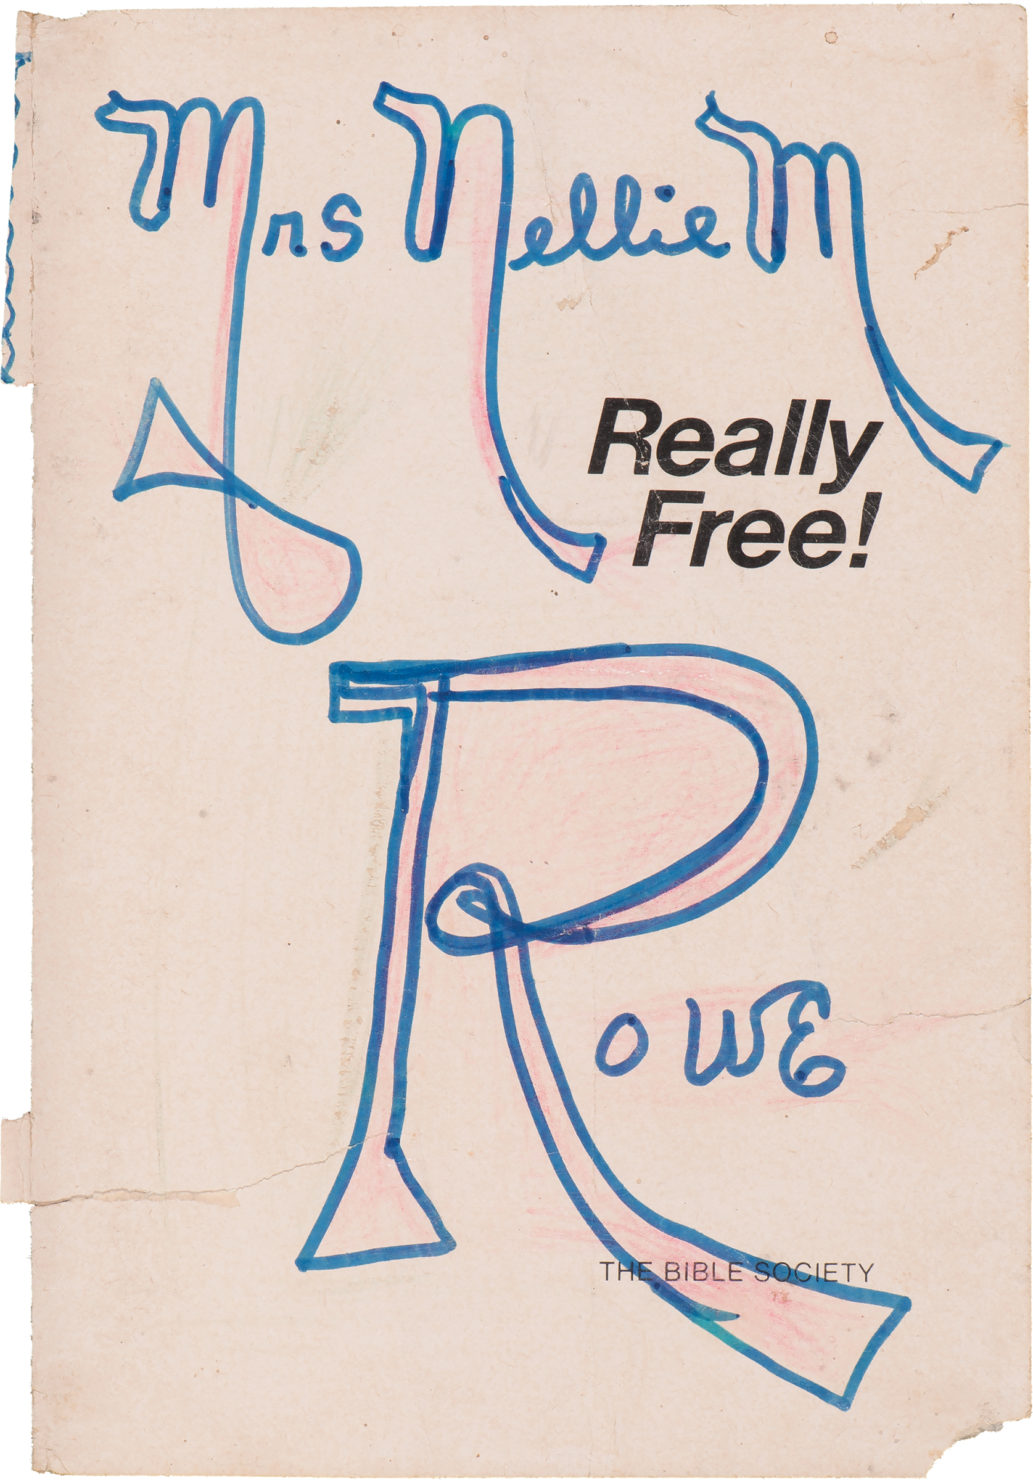 Mrs Nellie M
Really
Free!
RowE
THE BIBLE SOCIETY